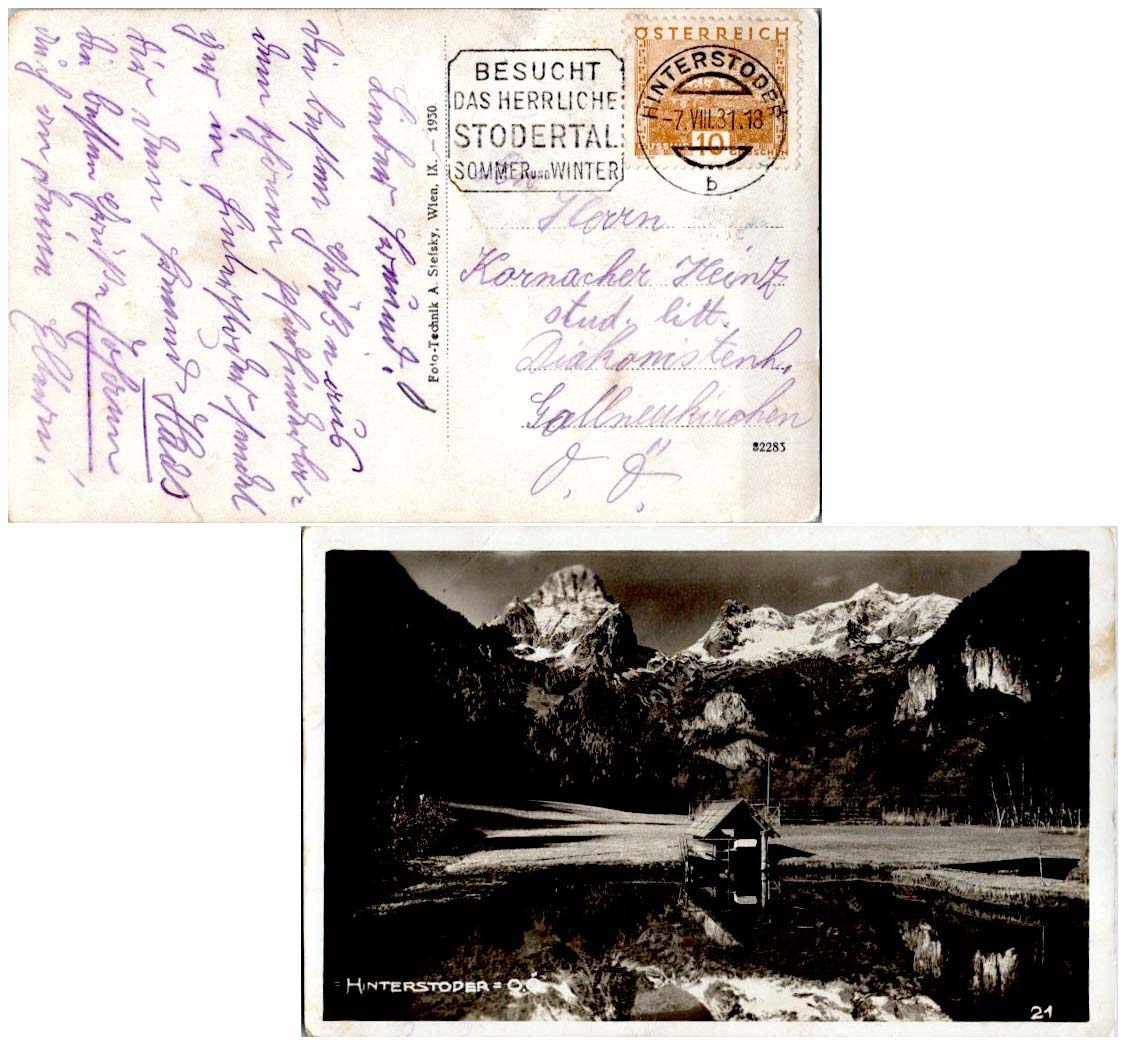 Lieber Freund!
Die besten Grüße aus
dem schönen Pfadfinderla=
ger in Hinterstoder sendet
Dir dein Freund Hans
Die besten Grüße
Foto-Technik A. Stefsky, Wien, IX. — 1930
BESUCHT
DAS HERRLICHE
STODERTAL
SOMMER UND WINTER
ÖSTERREICH
GÜSSING 10 GROSCHEN
HINTERSTODER
-7.VIII.31.18
b
An
Herrn
Kornacher Heinz
stud. litt.
Diakonistenh.
Gallneukirchen
O. Ö.
82283
= HINTERSTODER = O.Ö.
21